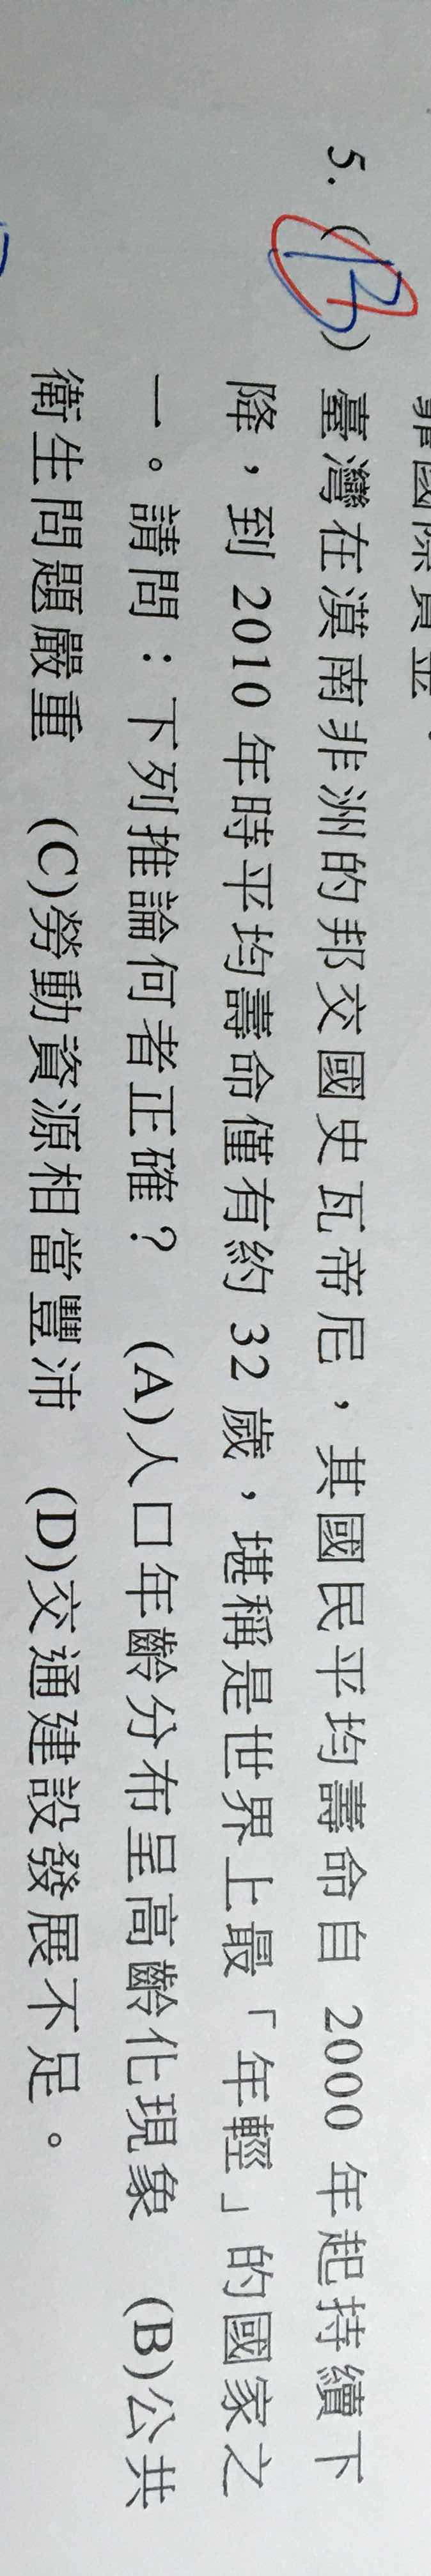 靠國際資金。
5. (B)臺灣在漠南非洲的邦交國史瓦帝尼，其國民平均壽命自 2000 年起持續下
降，到 2010 年時平均壽命僅有約 32 歲，堪稱是世界上最「年輕」的國家之
一。請問：下列推論何者正確？ (A)人口年齡分布呈高齡化現象 (B)公共
衛生問題嚴重 (C)勞動資源相當豐沛 (D)交通建設發展不足。